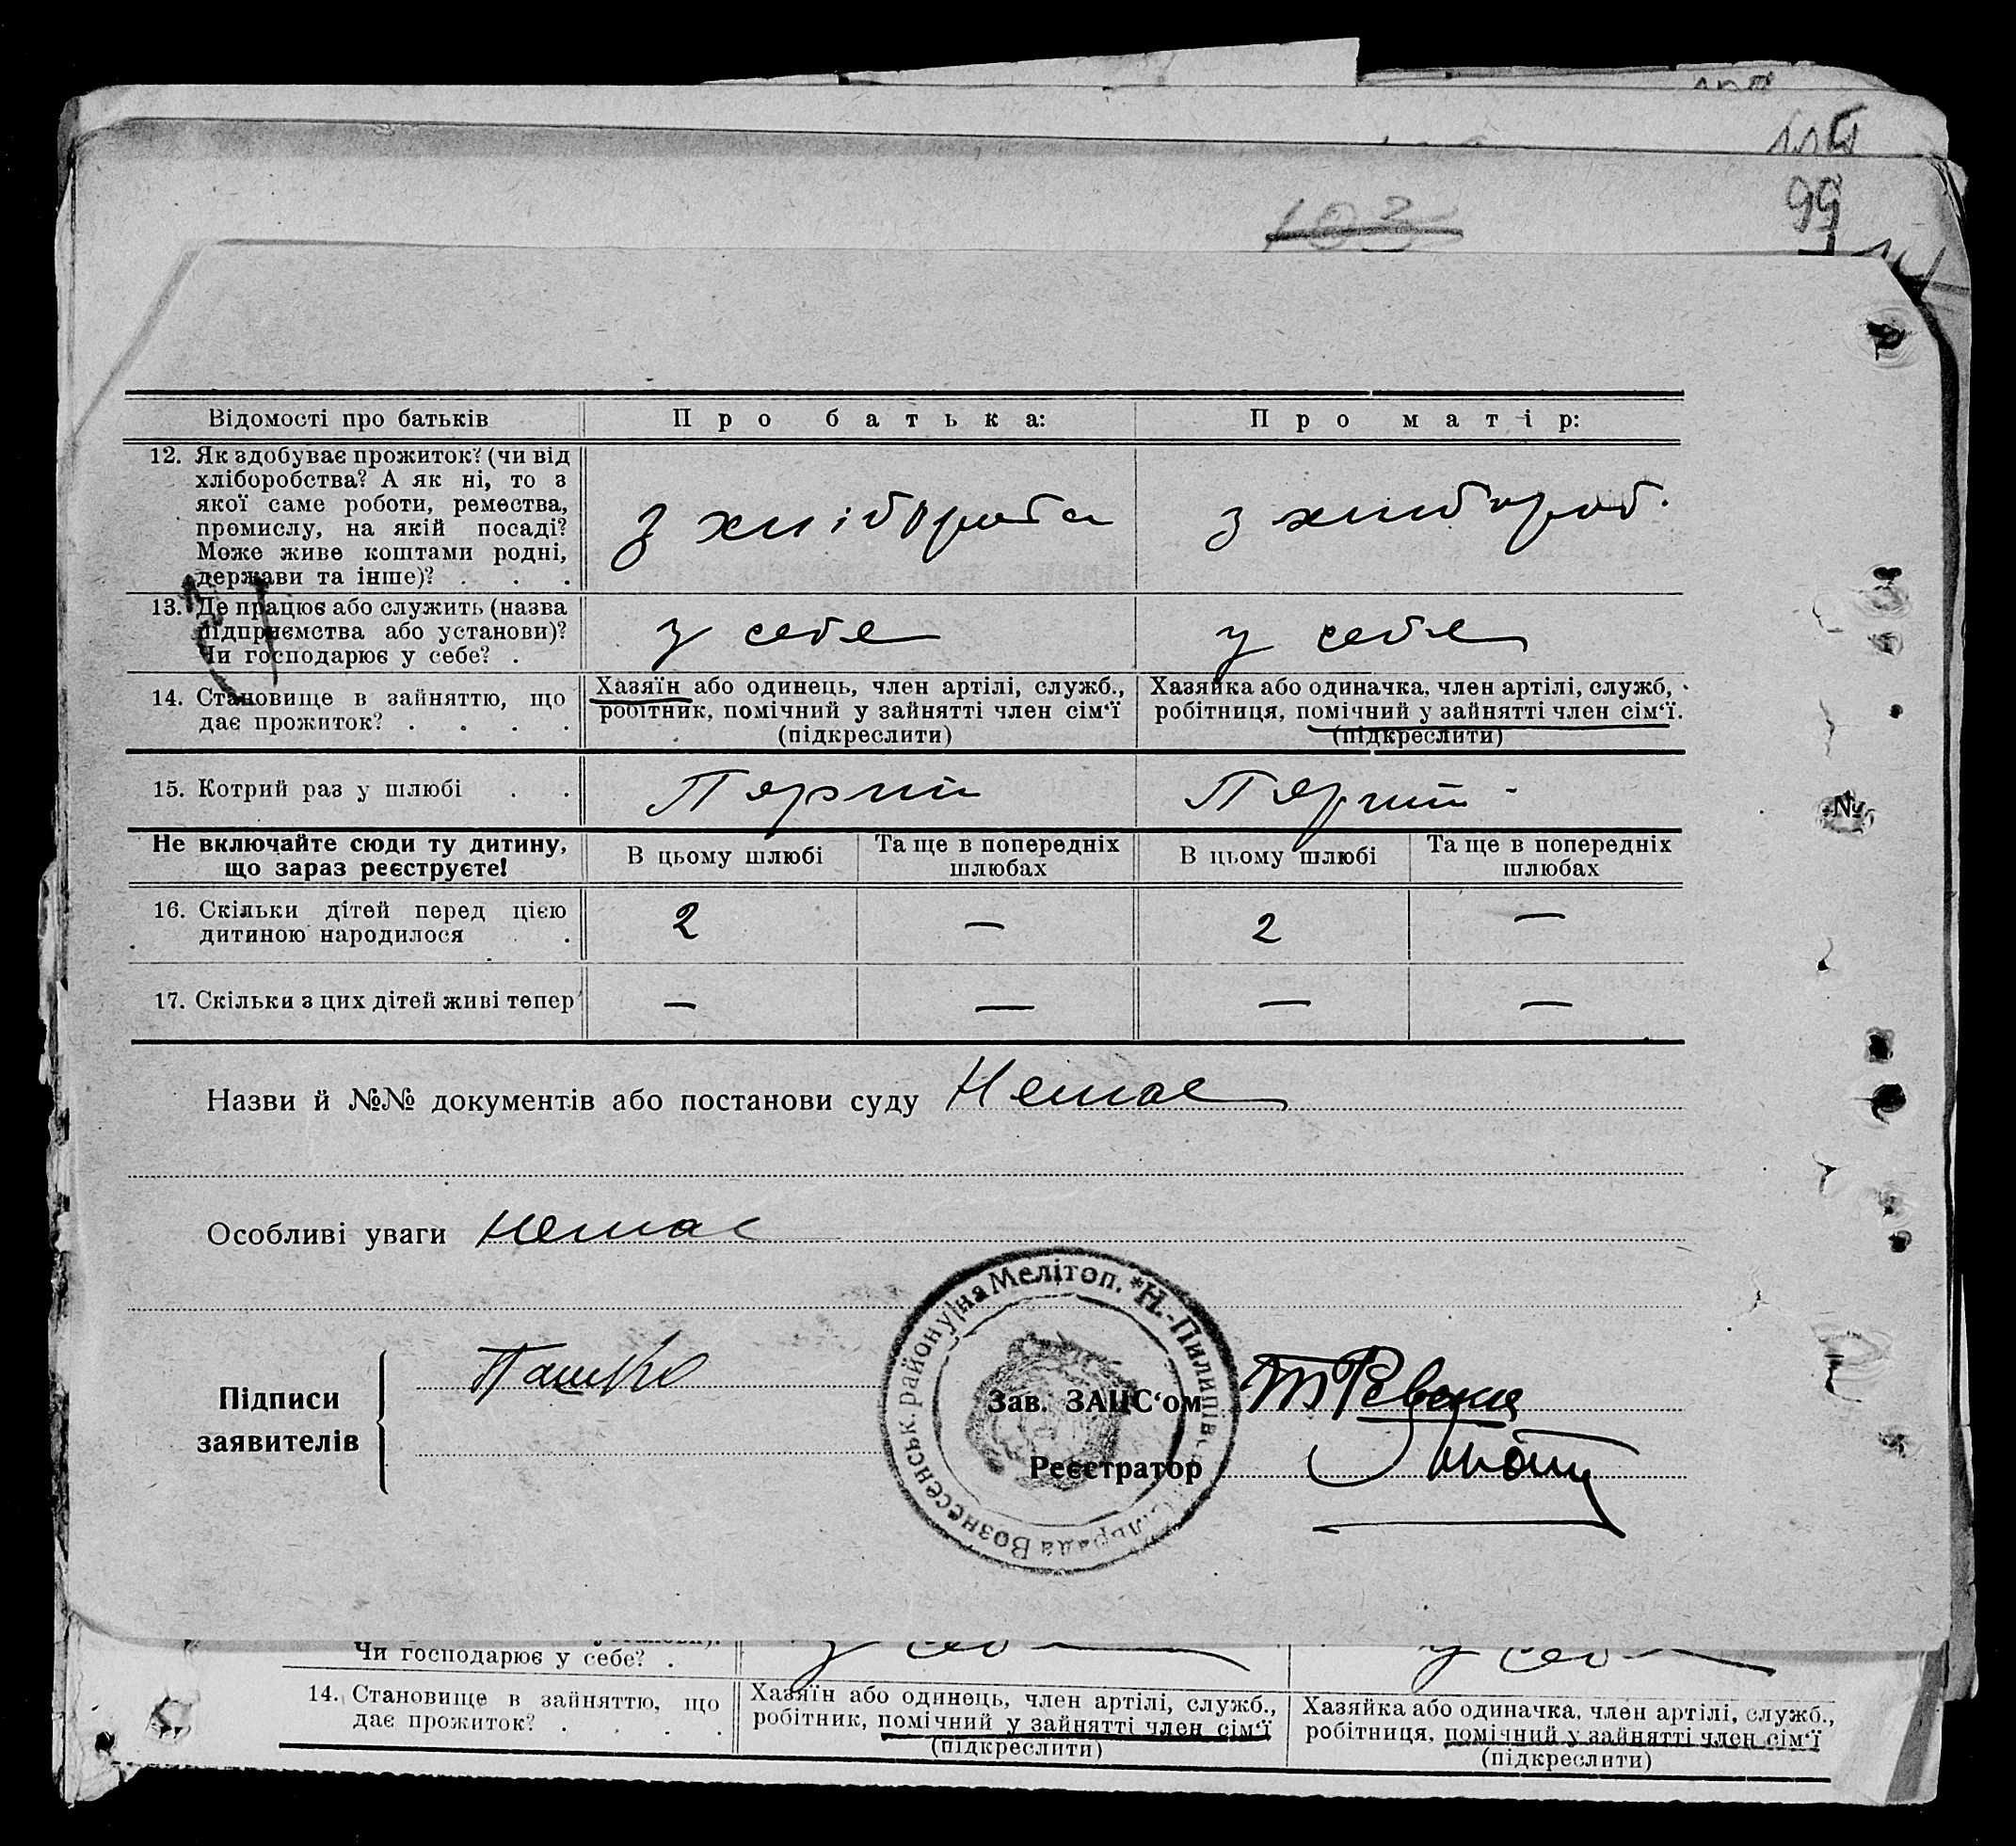 99
103
Відомості про батьків
Про батька:
Про матір:
12. Як здобуває прожиток? (чи від
хліборобства? А як ні, то з
якої саме роботи, ремества,
промислу, на якій посаді?
Може живе коштами родні,
держави та інше)? . . .
з хлібороба
з хлібороб.
13. Де працює або служить (назва
підприємства або установи)?
Чи господарює у себе? .
у себе
у себе
14. Становище в зайняттю, що
дає прожиток? . . . .
Хазяїн або одинець, член артілі, служб.,
робітник, помічний у зайнятті член сім'ї
(підкреслити)
Хазяйка або одиначка, член артілі, служб,
робітниця, помічний у зайнятті член сім'ї.
(підкреслити)
15. Котрий раз у шлюбі . .
Перший
Перший
Не включайте сюди ту дитину,
що зараз реєструєте!
В цьому шлюбі
Та ще в попередніх
шлюбах
В цьому шлюбі
Та ще в попередніх
шлюбах
16. Скільки дітей перед цією
дитиною народилося . .
2 — 2 —
17. Скільки з цих дітей живі тепер
— — — —
Назви й №№ документів або постанови суду Немає
Особливі уваги немає
Підписи
заявителів
Пашко
Зав. ЗАЦС'ом
Реєстратор
Н.-Пилипів. Сільрада Вознесенськ. району на Мелітоп.
№
Чи господарює у себе? .
у себе
у себе
14. Становище в зайняттю, що
дає прожиток? . . . .
Хазяїн або одинець, член артілі, служб.,
робітник, помічний у зайнятті член сім'ї
(підкреслити)
Хазяйка або одиначка, член артілі, служб.,
робітниця, помічний у зайнятті член сім'ї
(підкреслити)